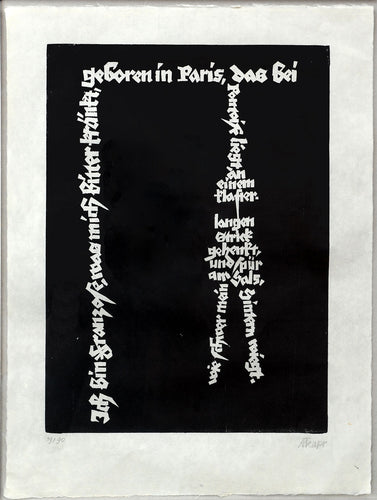 Ich bin Franzose, was mich bitter kränkt,
geboren in Paris, das bei
Pontoise liegt, an
einem
klafter-
langen
Strick
gehenkt,
und spür
am Hals,
wie schwer mein
Hintern wiegt.